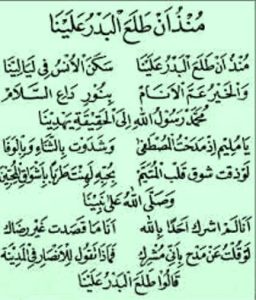 مُنْذُ أَنْ طَلَعَ الْبَدْرُ عَلَيْنَا
مُنْذُ أَنْ طَلَعَ الْبَدْرُ عَلَيْنَا سَكَنَ الْأُنْسُ فِي لَيَالِينَا
وَالْخَيْرُ عَمَّ الْأَنَامَ بِنُورِ دَاعِ السَّلَامْ
مُحَمَّدْ رَسُولُ اللهِ إِلَى الْحَقِيقَةِ يَهْدِينَا
يَا مُلِيمْ إِذْ مَدَحْتُ الْمُصْطَفَى وَشَدَوْتُ بِالثَّنَاءِ وَبِالْوَفَا
لَوْ ذِقْتَ شَوْقَ قَلْبِ الْمُتَيَّمْ بِحُبِّهِ لَهِمْتَ طَرَبًا بِأَشْوَاقِ الْمُحِبِّينْ
وَصَلَّى اللهُ عَلَى نَبِيِّنَا
أَنَا لَمْ أُشْرِكْ أَحَدًا بِاللهِ أَنَا مَا قَصَدْتُ غَيْرَ رِضَاكْ
لَوْ قُلْتَ عَنْ مَدْحِ بِأَنِّي مُشْرِكْ فَمَاذَا تَقُولُ لِلْأَنْصَارِ فِي الْمَدِينَهْ
قَالُوا طَلَعَ الْبَدْرُ عَلَيْنَا